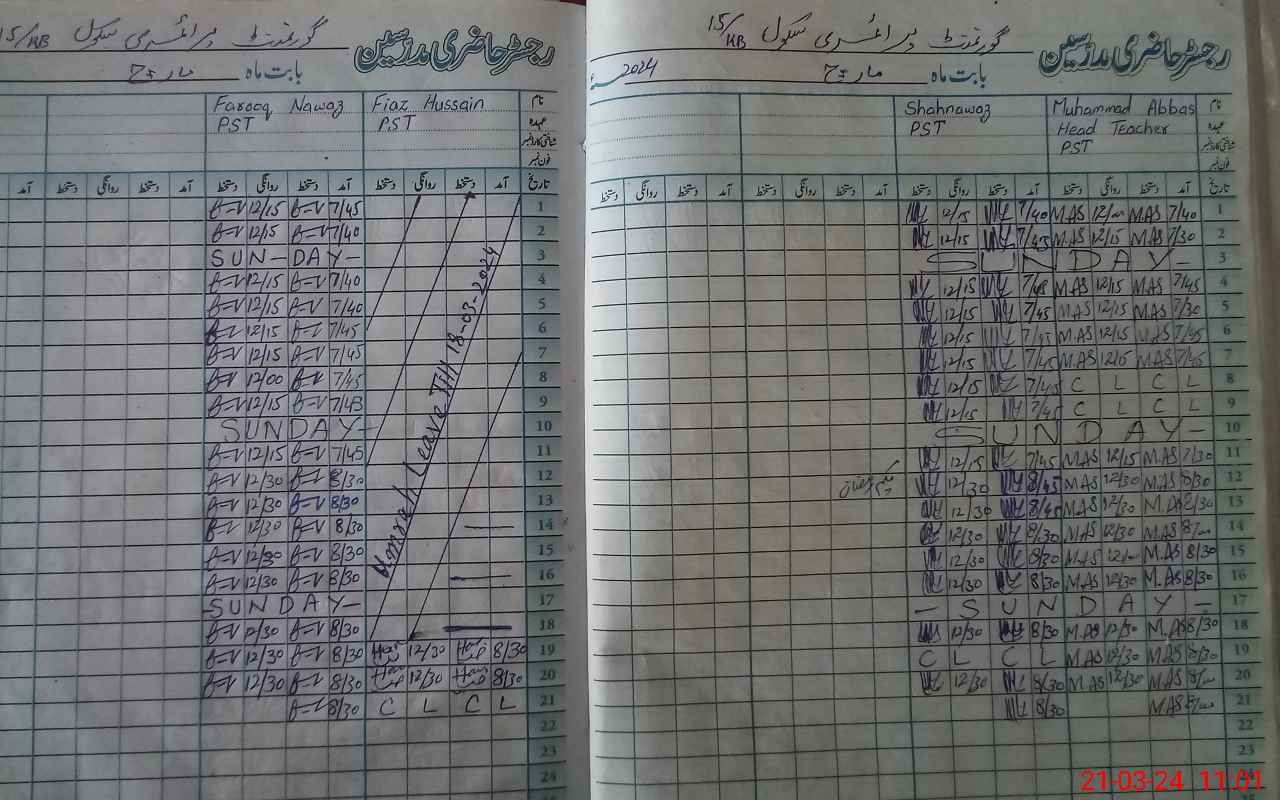 رجسٹر حاضری مدرسین گورنمنٹ پرائمری سکول 15/KB
بابت ماہ مارچ 2024ء
نام Muhammad Abbas Shahnawaz
عہدہ Head Teacher PST
شناختی کارڈ نمبر PST
فون نمبر
تاریخ آمد دستخط روانگی دستخط آمد دستخط روانگی دستخط آمد دستخط روانگی دستخط آمد دستخط روانگی دستخط
1 7/40 M.AS 12/00 M.AS 7/40 12/15
2 7/30 M.AS 12/15 M.AS 7/45 12/15
3 SUNDAY
4 7/45 M.AS 12/15 M.AS 12/15
5 7/30 M.AS 12/15 M.AS 7/45 12/15
6 7/45 M.AS 12/15 M.AS 7/45 12/15
7 7/45 M.AS 12/15 M.AS 7/45 12/15
8 C L C L 7/45 12/15
9 C L C L 7/45 12/15
10 SUNDAY
11 7/30 M.AS 12/15 M.AS 7/45 12/15
12 8/30 M.AS 12/30 M.AS 8/45 12/30
13 8/30 M.AS 12/30 M.AS 8/45 12/30
14 8/00 M.AS 12/30 M.AS 8/30 12/30
15 8/30 M.AS 12/00 M.AS 8/30 12/30
16 8/30 M.AS 12/30 M.AS 8/30 12/30
17 - SUNDAY -
18 8/30 M.AS 12/30 M.AS 8/30 12/30
19 8/30 M.AS 12/30 M.AS C L C L
20 8/00 M.AS 12/30 M.AS 8/30 12/30
21 8/00 M.AS 8/30
22
23
24
رجسٹر حاضری مدرسین گورنمنٹ پرائمری سکول 15/KB
بابت ماہ مارچ
نام Fiaz Hussain Farooq Nawaz
عہدہ PST PST
شناختی کارڈ نمبر
فون نمبر
تاریخ آمد دستخط روانگی دستخط آمد دستخط روانگی دستخط آمد دستخط روانگی دستخط آمد
Umrah Leave Till 18-03-2024
1 7/45 12/15
2 7/40 12/15
3 SUN-DAY-
4 7/40 12/15
5 7/40 12/15
6 7/45 12/15
7 7/45 12/15
8 7/45 12/00
9 7/43 12/15
10 SUNDAY-
11 7/45 12/15
12 8/30 12/30
13 8/30 12/30
14 8/30 12/30
15 8/30 12/30
16 8/30 12/30
17 -SUNDAY-
18 8/30 12/30
19 8/30 12/30 8/30 12/30
20 8/30 12/30 8/30 12/30
21 C L C L 8/30
22
23
24
21-03-24 11:01